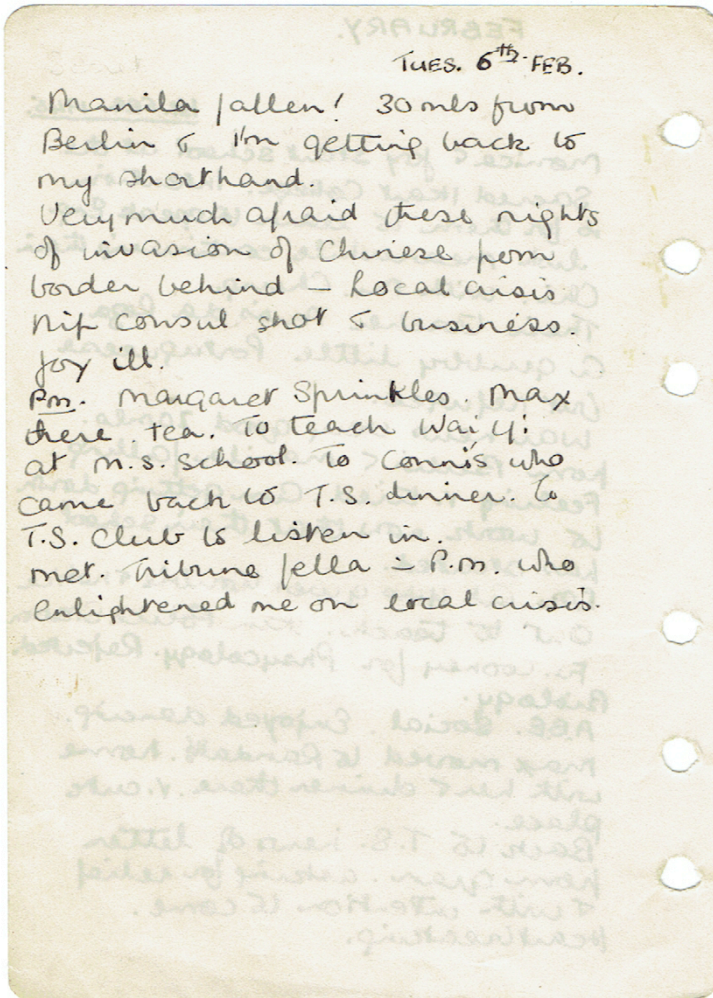 TUES. 6th FEB.
Manila fallen! 30 mls from
Berlin & I'm getting back to
my shorthand.
Very much afraid these nights
of invasion of Chinese from
border behind – Local crisis
Nip Consul shot & business.
Joy ill.
P.m. Margaret Sprinkles. Max
there. tea. To teach Wai Yi
at M.S. School. To Connis who
came back to T.S. dinner. To
T.S. Club to listen in.
Met. Tribune fella – P.M. who
enlightened me on local crisis.